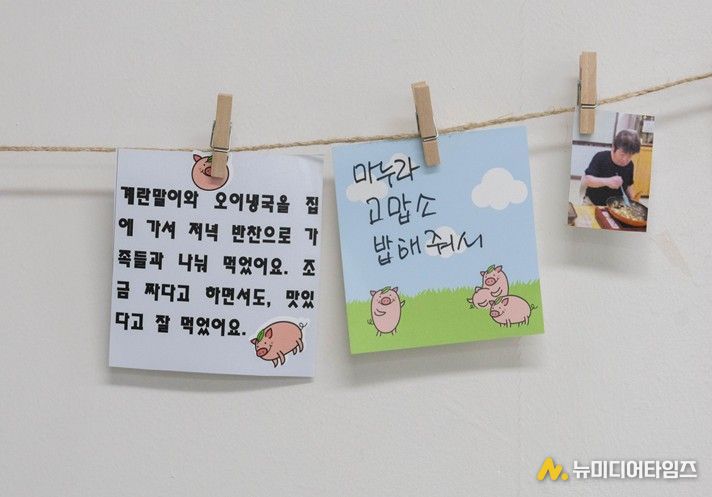 계란말이와 오이냉국을 집
에 가서 저녁 반찬으로 가
족들과 나눠 먹었어요. 조
금 짜다고 하면서도, 맛있
다고 잘 먹었어요.
마누라
고맙소
밥해줘서
뉴미디어타임즈